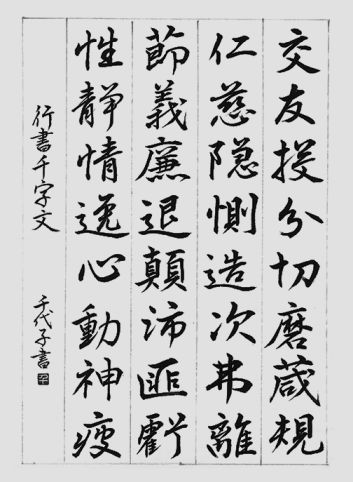 交友投分切磨箴規
仁慈隠惻造次弗離
節義廉退顛沛匪虧
性静情逸心動神疲
行書千字文
千代子書